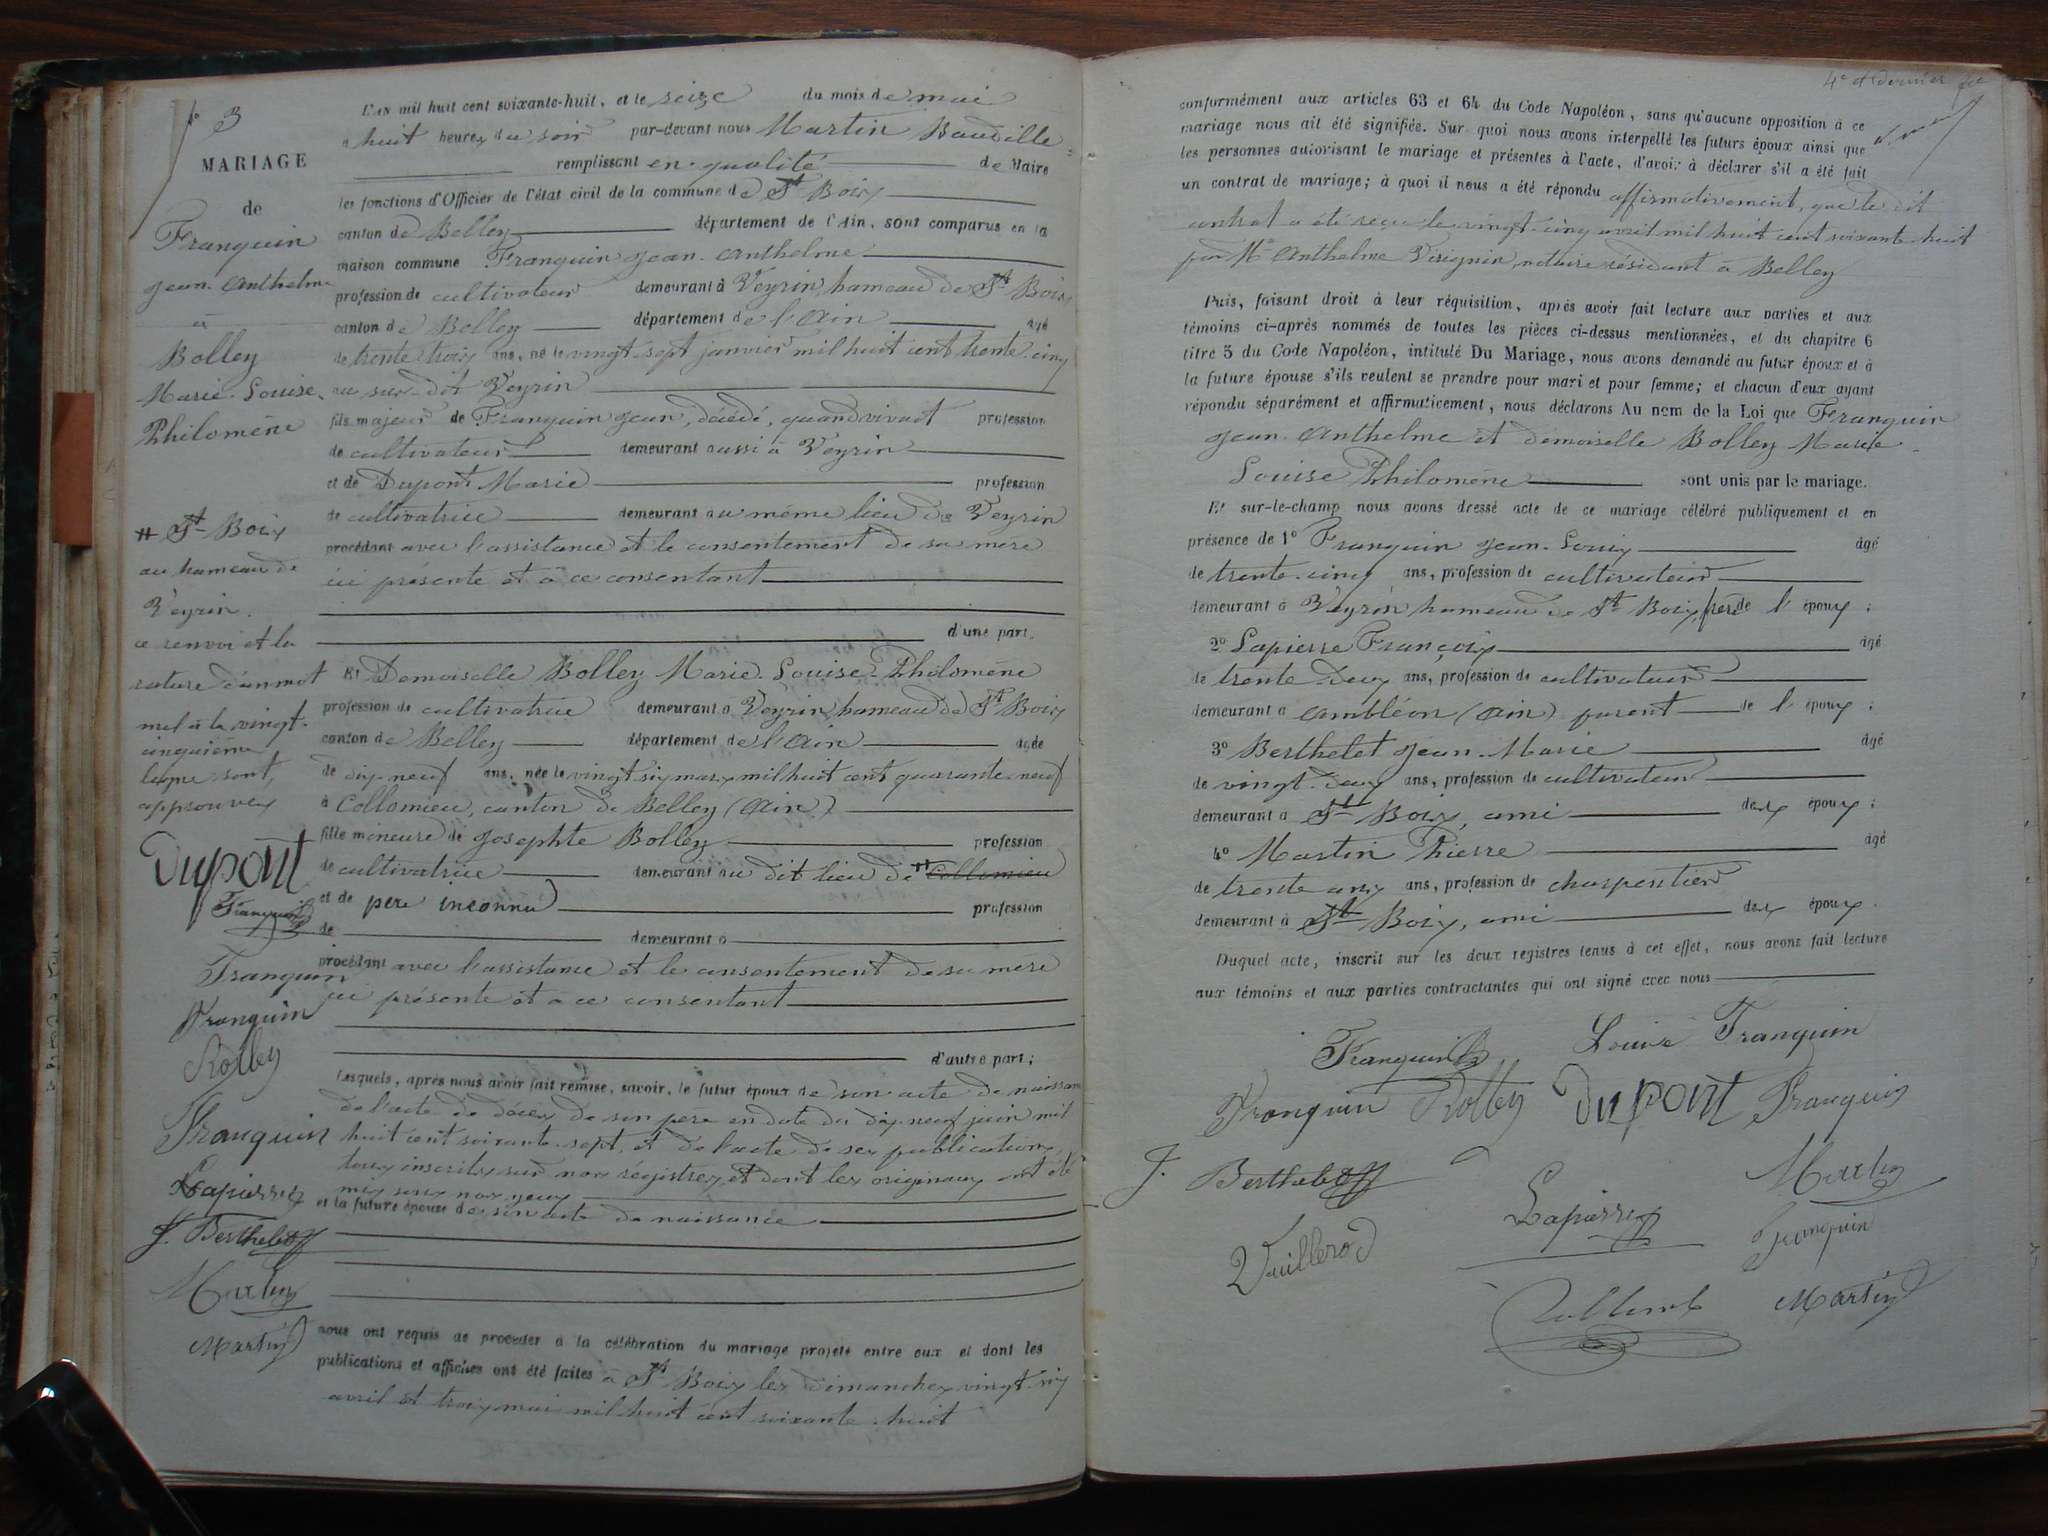 3
MARIAGE
de
Franquin
Jean-Anthelme
à
Bolley
Marie-Louise-
Philomène
# St Boix
au hameau de
Veyrin.
ce renvoi et la
rature d'un mot
nul à la vingt-
cinquième
ligne sont,
approuvés
Dupont
Franquin
Franquin
Franquin
Bolley
Franquin
Lapierre
J. Berthelet
Martin
Martin
L'AN mil huit cent soixante-huit, et le seize du mois de mai
à huit heures du soir par-devant nous Martin Baudille
remplissant en qualité de Maire
les fonctions d'Officier de l'état civil de la commune de St Boix
canton de Belley département de l'Ain, sont comparus en la
maison commune Franquin Jean-Anthelme
profession de cultivateur demeurant à Veyrin, hameau de St Boix
canton de Belley département de l'Ain âgé
de trente trois ans, né le vingt-sept janvier mil huit cent trente-cinq
au sus-dit Veyrin
fils majeur de Franquin Jean, décédé, quand vivait profession
de cultivateur demeurant aussi à Veyrin
et de Dupont Marie profession
de cultivatrice demeurant au même lieu de Veyrin
procédant avec l'assistance et le consentement de sa mère
ici présente et à ce consentant
d'une part.
Et Demoiselle Bolley Marie-Louise-Philomène
profession de cultivatrice demeurant à Veyrin, hameau de St Boix
canton de Belley département de l'Ain âgée
de dix-neuf ans, née le vingt six mars mil huit cent quarante-neuf
à Collomieu, canton de Belley (Ain)
fille mineure de Josephte Bolley profession
de cultivatrice demeurant au dit lieu de # Collomieu
et de père inconnu profession
de demeurant à
procédant avec l'assistance et le consentement de sa mère
ici présente et à ce consentant
d'autre part;
Lesquels, après nous avoir fait remise, savoir, le futur époux de son acte de naissance
de l'acte de décès de son père en date du dix-neuf juin mil
huit cent soixante-sept, et de l'acte de ses publications,
tous inscrits sur nos régistres et dont les originaux ont été
mis sous nos yeux
et la future épouse de son acte de naissance
nous ont requis de procéder à la célébration du mariage projeté entre eux et dont les
publications et affiches ont été faites à St Boix les dimanches vingt-six
avril et trois mai mil huit cent soixante-huit
4e et dernier
conformément aux articles 63 et 64 du Code Napoléon, sans qu'aucune opposition à ce
mariage nous ait été signifiée. Sur quoi nous avons interpellé les futurs époux ainsi que
les personnes autorisant le mariage et présentes à l'acte, d'avoir à déclarer s'il a été fait
un contrat de mariage; à quoi il nous a été répondu affirmativement, que le dit
contrat a été reçu le vingt-cinq avril mil huit cent soixante-huit
par Me Anthelme notaire résidant à Belley
Puis, faisant droit à leur réquisition, après avoir fait lecture aux parties et aux
témoins ci-après nommés de toutes les pièces ci-dessus mentionnées, et du chapitre 6
titre 5 du Code Napoléon, intitulé Du Mariage, nous avons demandé au futur époux et à
la future épouse s'ils veulent se prendre pour mari et pour femme; et chacun d'eux ayant
répondu séparément et affirmativement, nous déclarons Au nom de la Loi que Franquin
Jean-Anthelme et demoiselle Bolley Marie-
Louise Philomène sont unis par le mariage.
Et sur-le-champ nous avons dressé acte de ce mariage célébré publiquement et en
présence de 1° Franquin Jean-Louis âgé
de trente-cinq ans, profession de cultivateur
demeurant à Veyrin hameau de St Boix, frère de l'époux;
2° Lapierre François âgé
de trente-deux ans, profession de cultivateur
demeurant à Ambléon (Ain) parent de l'époux;
3° Berthelet Jean-Marie âgé
de vingt-deux ans, profession de cultivateur
demeurant à St Boix, ami des époux;
4° Martin Pierre âgé
de trente ans, profession de charpentier
demeurant à St Boix, ami des époux.
Duquel acte, inscrit sur les deux registres tenus à cet effet, nous avons fait lecture
aux témoins et aux parties contractantes qui ont signé avec nous
Franquin Louise Franquin
Franquin Bolley Dupont Franquin
J. Berthelet Lapierre Martin
Vuillerod Franquin
Martin